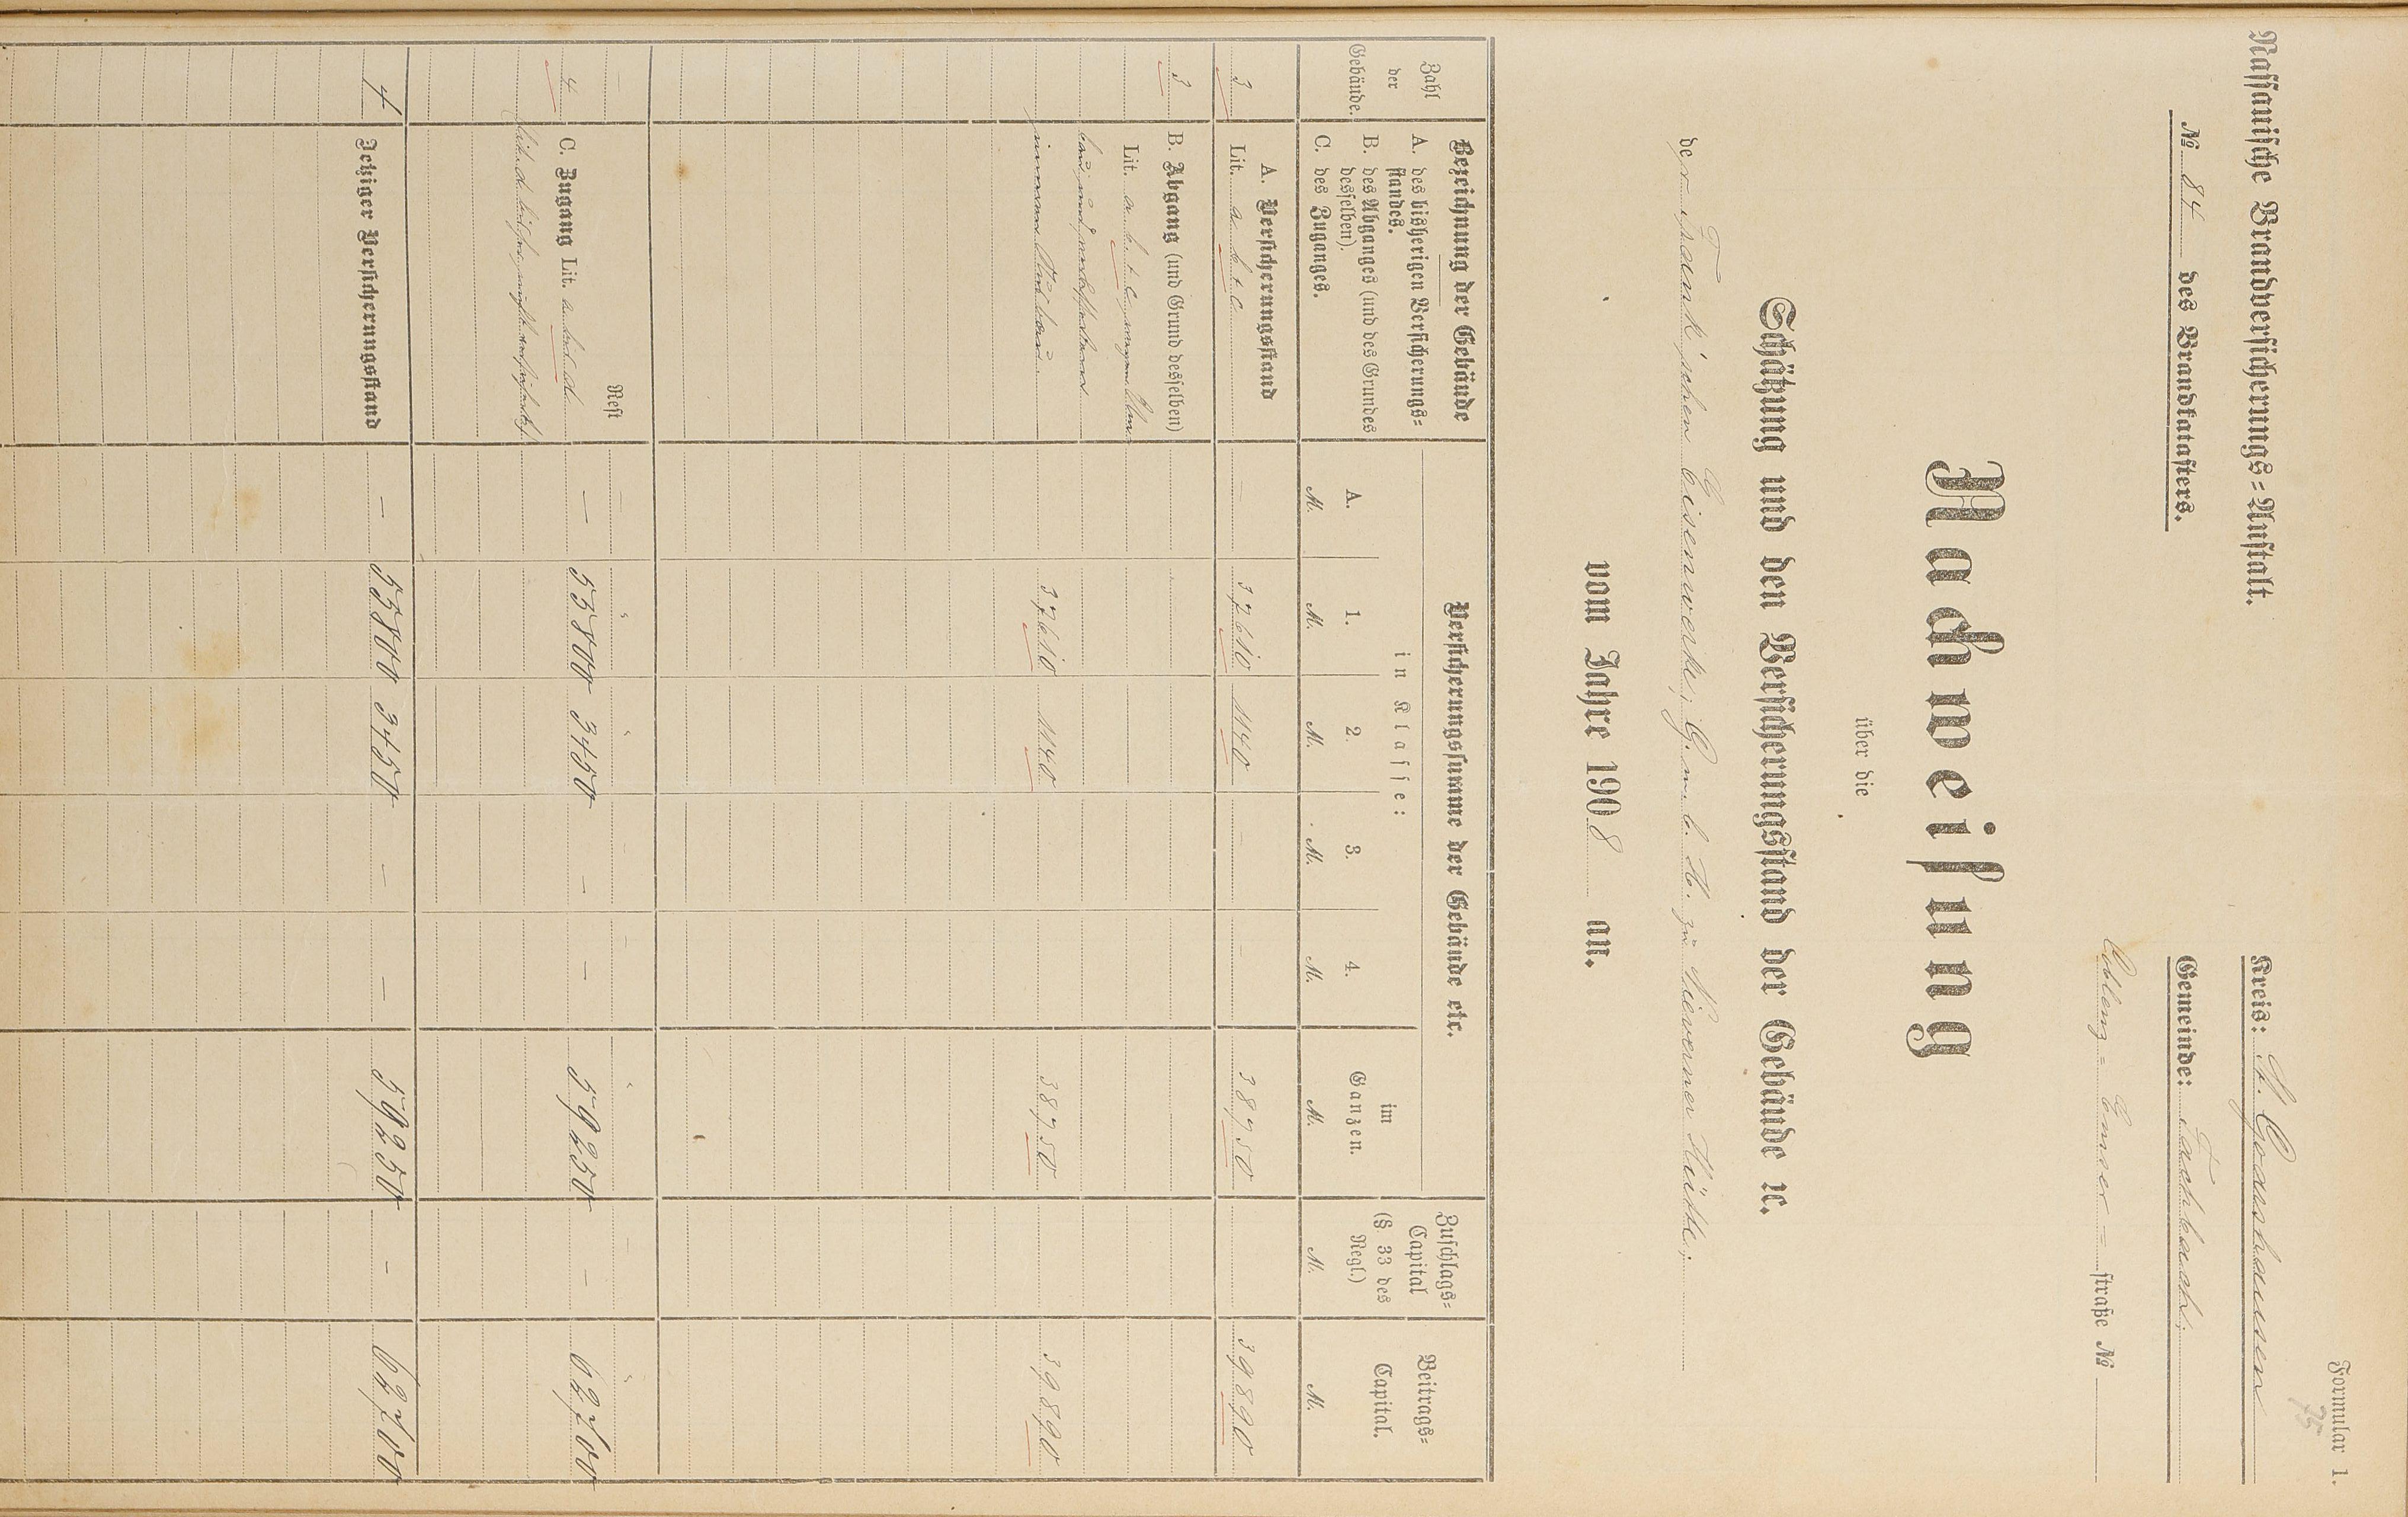 Formular 1.
75
Nassauische Brandversicherungs-Anstalt.
Kreis: St. Goarshausen
№ 84 des Brandkatasters.
Gemeinde: Fachbach;
Coblenz-Emser-straße №
Nachweisung
über die
Schätzung und den Versicherungsstand der Gebäude ꝛc.
der Frank'schen Eisenwerke, G. m. b. H. zu Nieverner Hütte;
vom Jahre 1908 an.
Zahl der Gebäude.
Bezeichnung der Gebäude
A. des bisherigen Versicherungs-
standes.
B. des Abganges (und des Grundes
desselben).
C. des Zuganges.
Versicherungssumme der Gebäude etc.
in Klasse:
A. 1. 2. 3. 4.
im Ganzen.
Zuschlags-
Capital
(§. 33 des
Regl.)
Beitrags-
Capital.
M. M. M. M. M. M. M. M.
A. Versicherungsstand
3 Lit. a b. + c. – 37610 1140 – – 38750 39890
B. Abgang (und Grund desselben)
3 Lit. a b. + c. wegen Um-
bau und
inneren 37610 1140 38750 39890
Rest – – " " – – " – "
4 C. Zugang Lit. a bis d – 55800 3450 – – 59250 – 62700
Lit. d
4 Jetziger Versicherungsstand – 55800 3450 – – 59250 – 62700